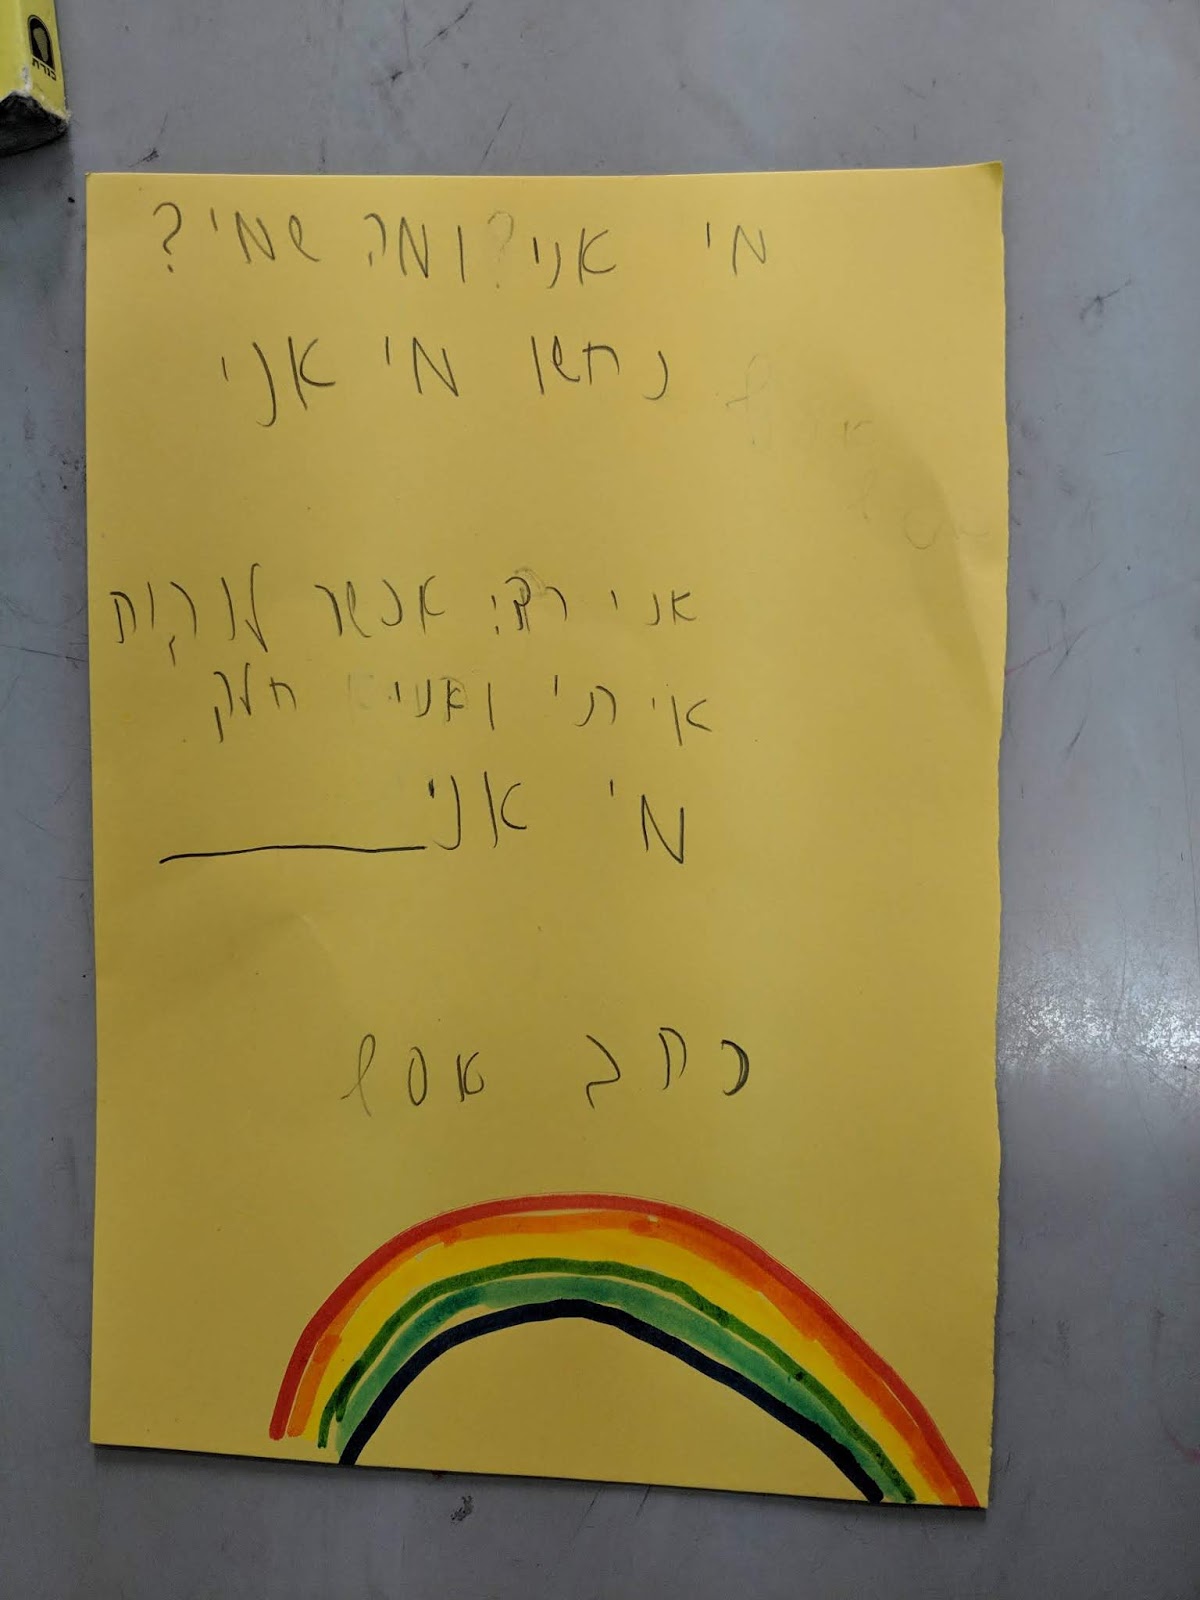 כנרת
מי אני? ומה שמי?
נחשו מי אני
אני אפשר לנקות
איתי ואני חלק
מי אני
כתב אסף